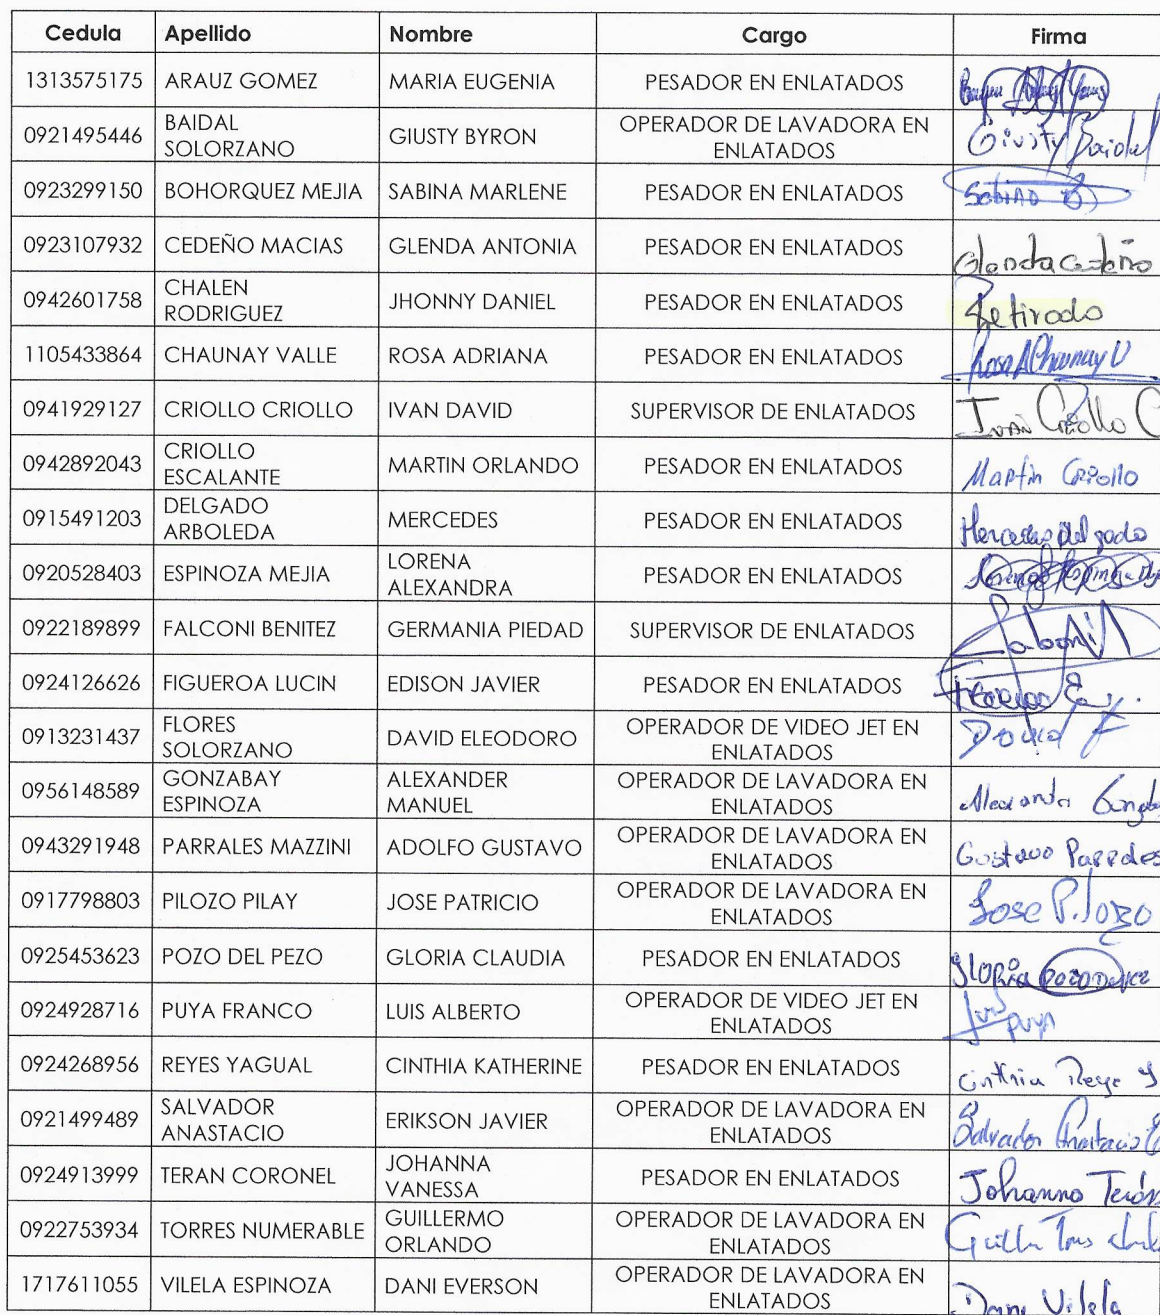 Cedula Apellido Nombre Cargo Firma
1313575175 ARAUZ GOMEZ MARIA EUGENIA PESADOR EN ENLATADOS
0921495446 BAIDAL SOLORZANO GIUSTY BYRON OPERADOR DE LAVADORA EN ENLATADOS Giusty Baidal
0923299150 BOHORQUEZ MEJIA SABINA MARLENE PESADOR EN ENLATADOS
0923107932 CEDEÑO MACIAS GLENDA ANTONIA PESADOR EN ENLATADOS Glenda Cedeño
0942601758 CHALEN RODRIGUEZ JHONNY DANIEL PESADOR EN ENLATADOS Retirado
1105433864 CHAUNAY VALLE ROSA ADRIANA PESADOR EN ENLATADOS Rosa A Chaunay V
0941929127 CRIOLLO CRIOLLO IVAN DAVID SUPERVISOR DE ENLATADOS Ivan Criollo C
0942892043 CRIOLLO ESCALANTE MARTIN ORLANDO PESADOR EN ENLATADOS Martin Criollo
0915491203 DELGADO ARBOLEDA MERCEDES PESADOR EN ENLATADOS Mercedes Delgado
0920528403 ESPINOZA MEJIA LORENA ALEXANDRA PESADOR EN ENLATADOS
0922189899 FALCONI BENITEZ GERMANIA PIEDAD SUPERVISOR DE ENLATADOS
0924126626 FIGUEROA LUCIN EDISON JAVIER PESADOR EN ENLATADOS
0913231437 FLORES SOLORZANO DAVID ELEODORO OPERADOR DE VIDEO JET EN ENLATADOS David F
0956148589 GONZABAY ESPINOZA ALEXANDER MANUEL OPERADOR DE LAVADORA EN ENLATADOS
0943291948 PARRALES MAZZINI ADOLFO GUSTAVO OPERADOR DE LAVADORA EN ENLATADOS Gustavo Parrales
0917798803 PILOZO PILAY JOSE PATRICIO OPERADOR DE LAVADORA EN ENLATADOS Jose Pilozo
0925453623 POZO DEL PEZO GLORIA CLAUDIA PESADOR EN ENLATADOS Gloria
0924928716 PUYA FRANCO LUIS ALBERTO OPERADOR DE VIDEO JET EN ENLATADOS Luis Puya
0924268956 REYES YAGUAL CINTHIA KATHERINE PESADOR EN ENLATADOS Cinthia Reye Y
0921499489 SALVADOR ANASTACIO ERIKSON JAVIER OPERADOR DE LAVADORA EN ENLATADOS Salvador Anastacio E
0924913999 TERAN CORONEL JOHANNA VANESSA PESADOR EN ENLATADOS Johanna Terán
0922753934 TORRES NUMERABLE GUILLERMO ORLANDO OPERADOR DE LAVADORA EN ENLATADOS
1717611055 VILELA ESPINOZA DANI EVERSON OPERADOR DE LAVADORA EN ENLATADOS Dani Vilela